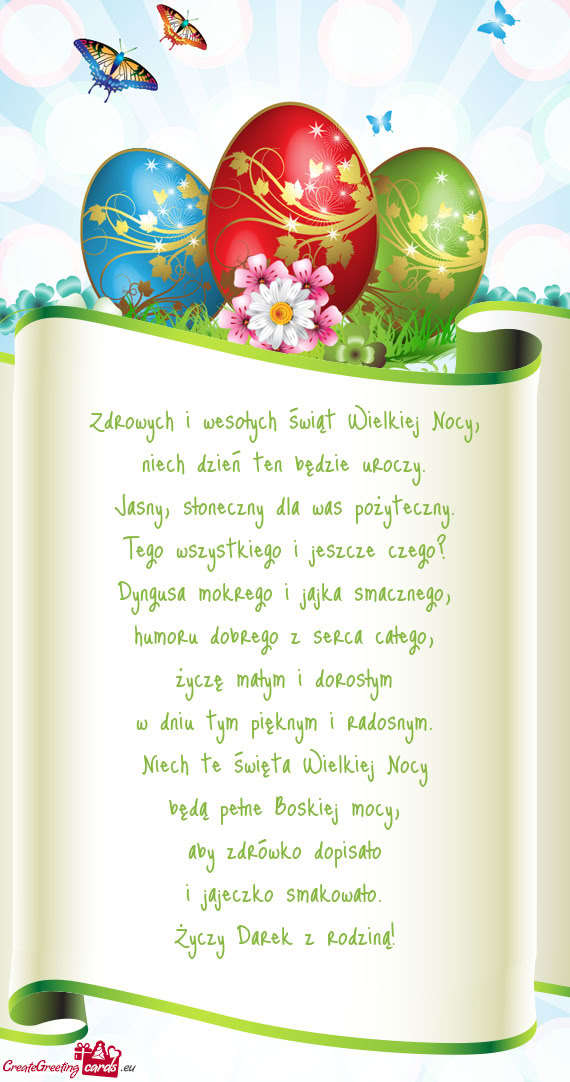 Zdrowych i wesołych świąt Wielkiej Nocy,
niech dzień ten będzie uroczy.
Jasny, słoneczny dla was pożyteczny.
Tego wszystkiego i jeszcze czego?
Dyngusa mokrego i jajka smacznego,
humoru dobrego z serca całego,
życzę małym i dorosłym
w dniu tym pięknym i radosnym.
Niech te święta Wielkiej Nocy
będą pełne Boskiej mocy,
aby zdrówko dopisało
i jajeczko smakowało.
Życzy Darek z rodziną!
CreateGreeting cards .eu